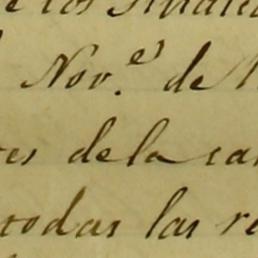 de los
Nov.es de
es de la ca
todas las re